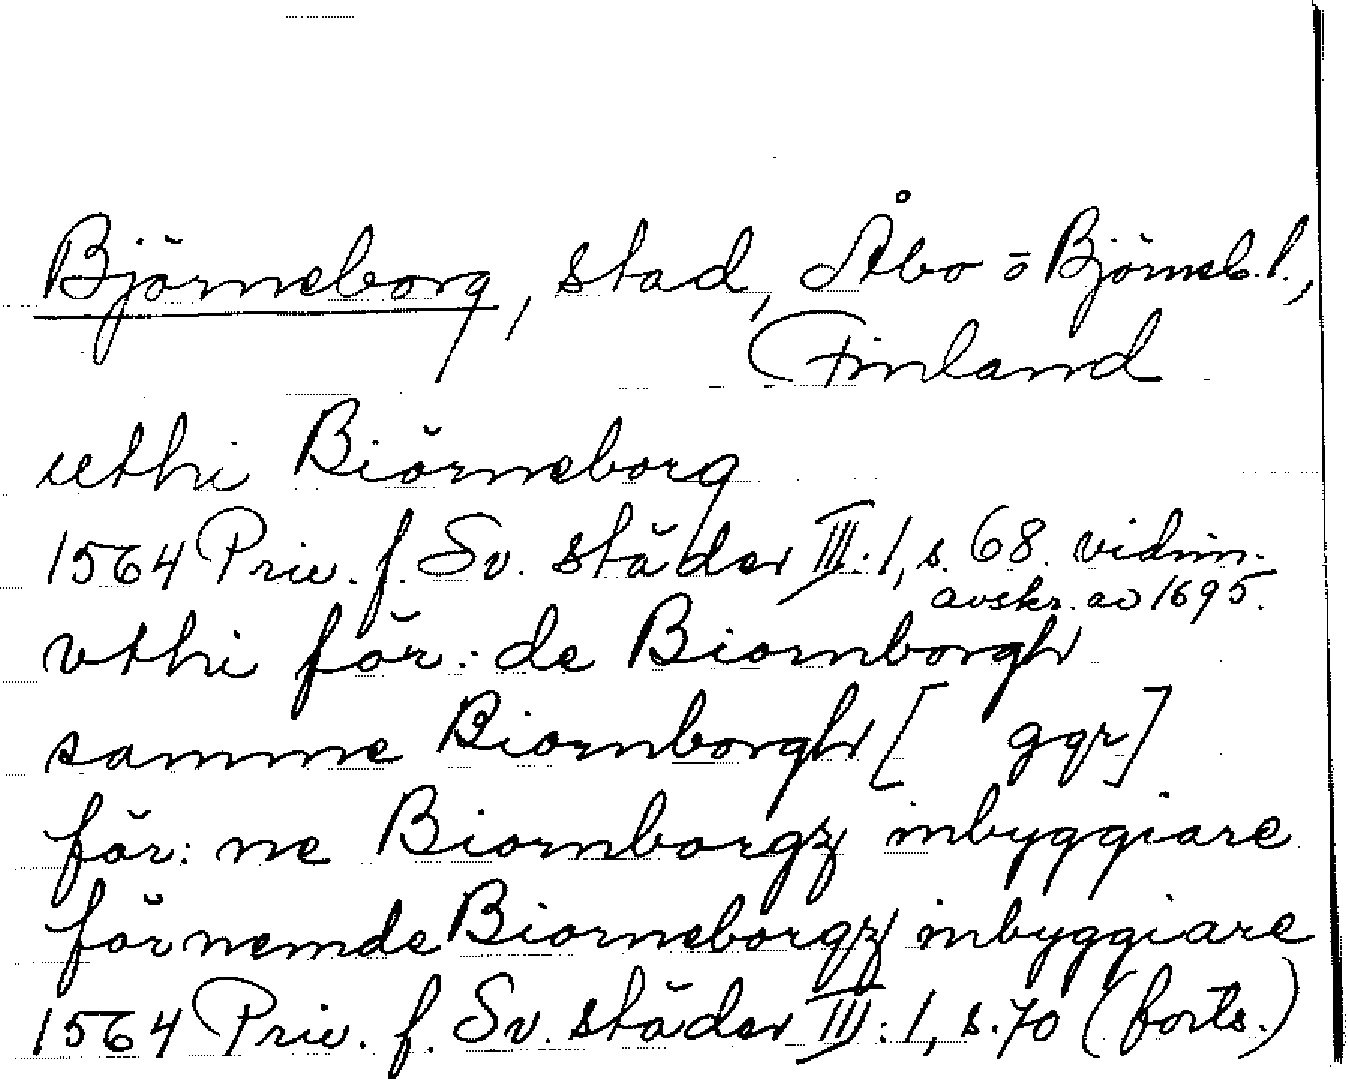 Björneborg, stad, Åbo o Björneb. l.,
Finland
uthi Biörneborg
1564 Priv. f. Sv. städer III:1, s. 68. vidim.
avskr. av 1695.
vthi för:de Biornborgh
samme Biornborgh [ ggr]
för:ne Biornborgz inbyggiare
förnemde Biorneborgz inbyggiare
1564 Priv. f. Sv. städer III:1, s. 70 (forts.)